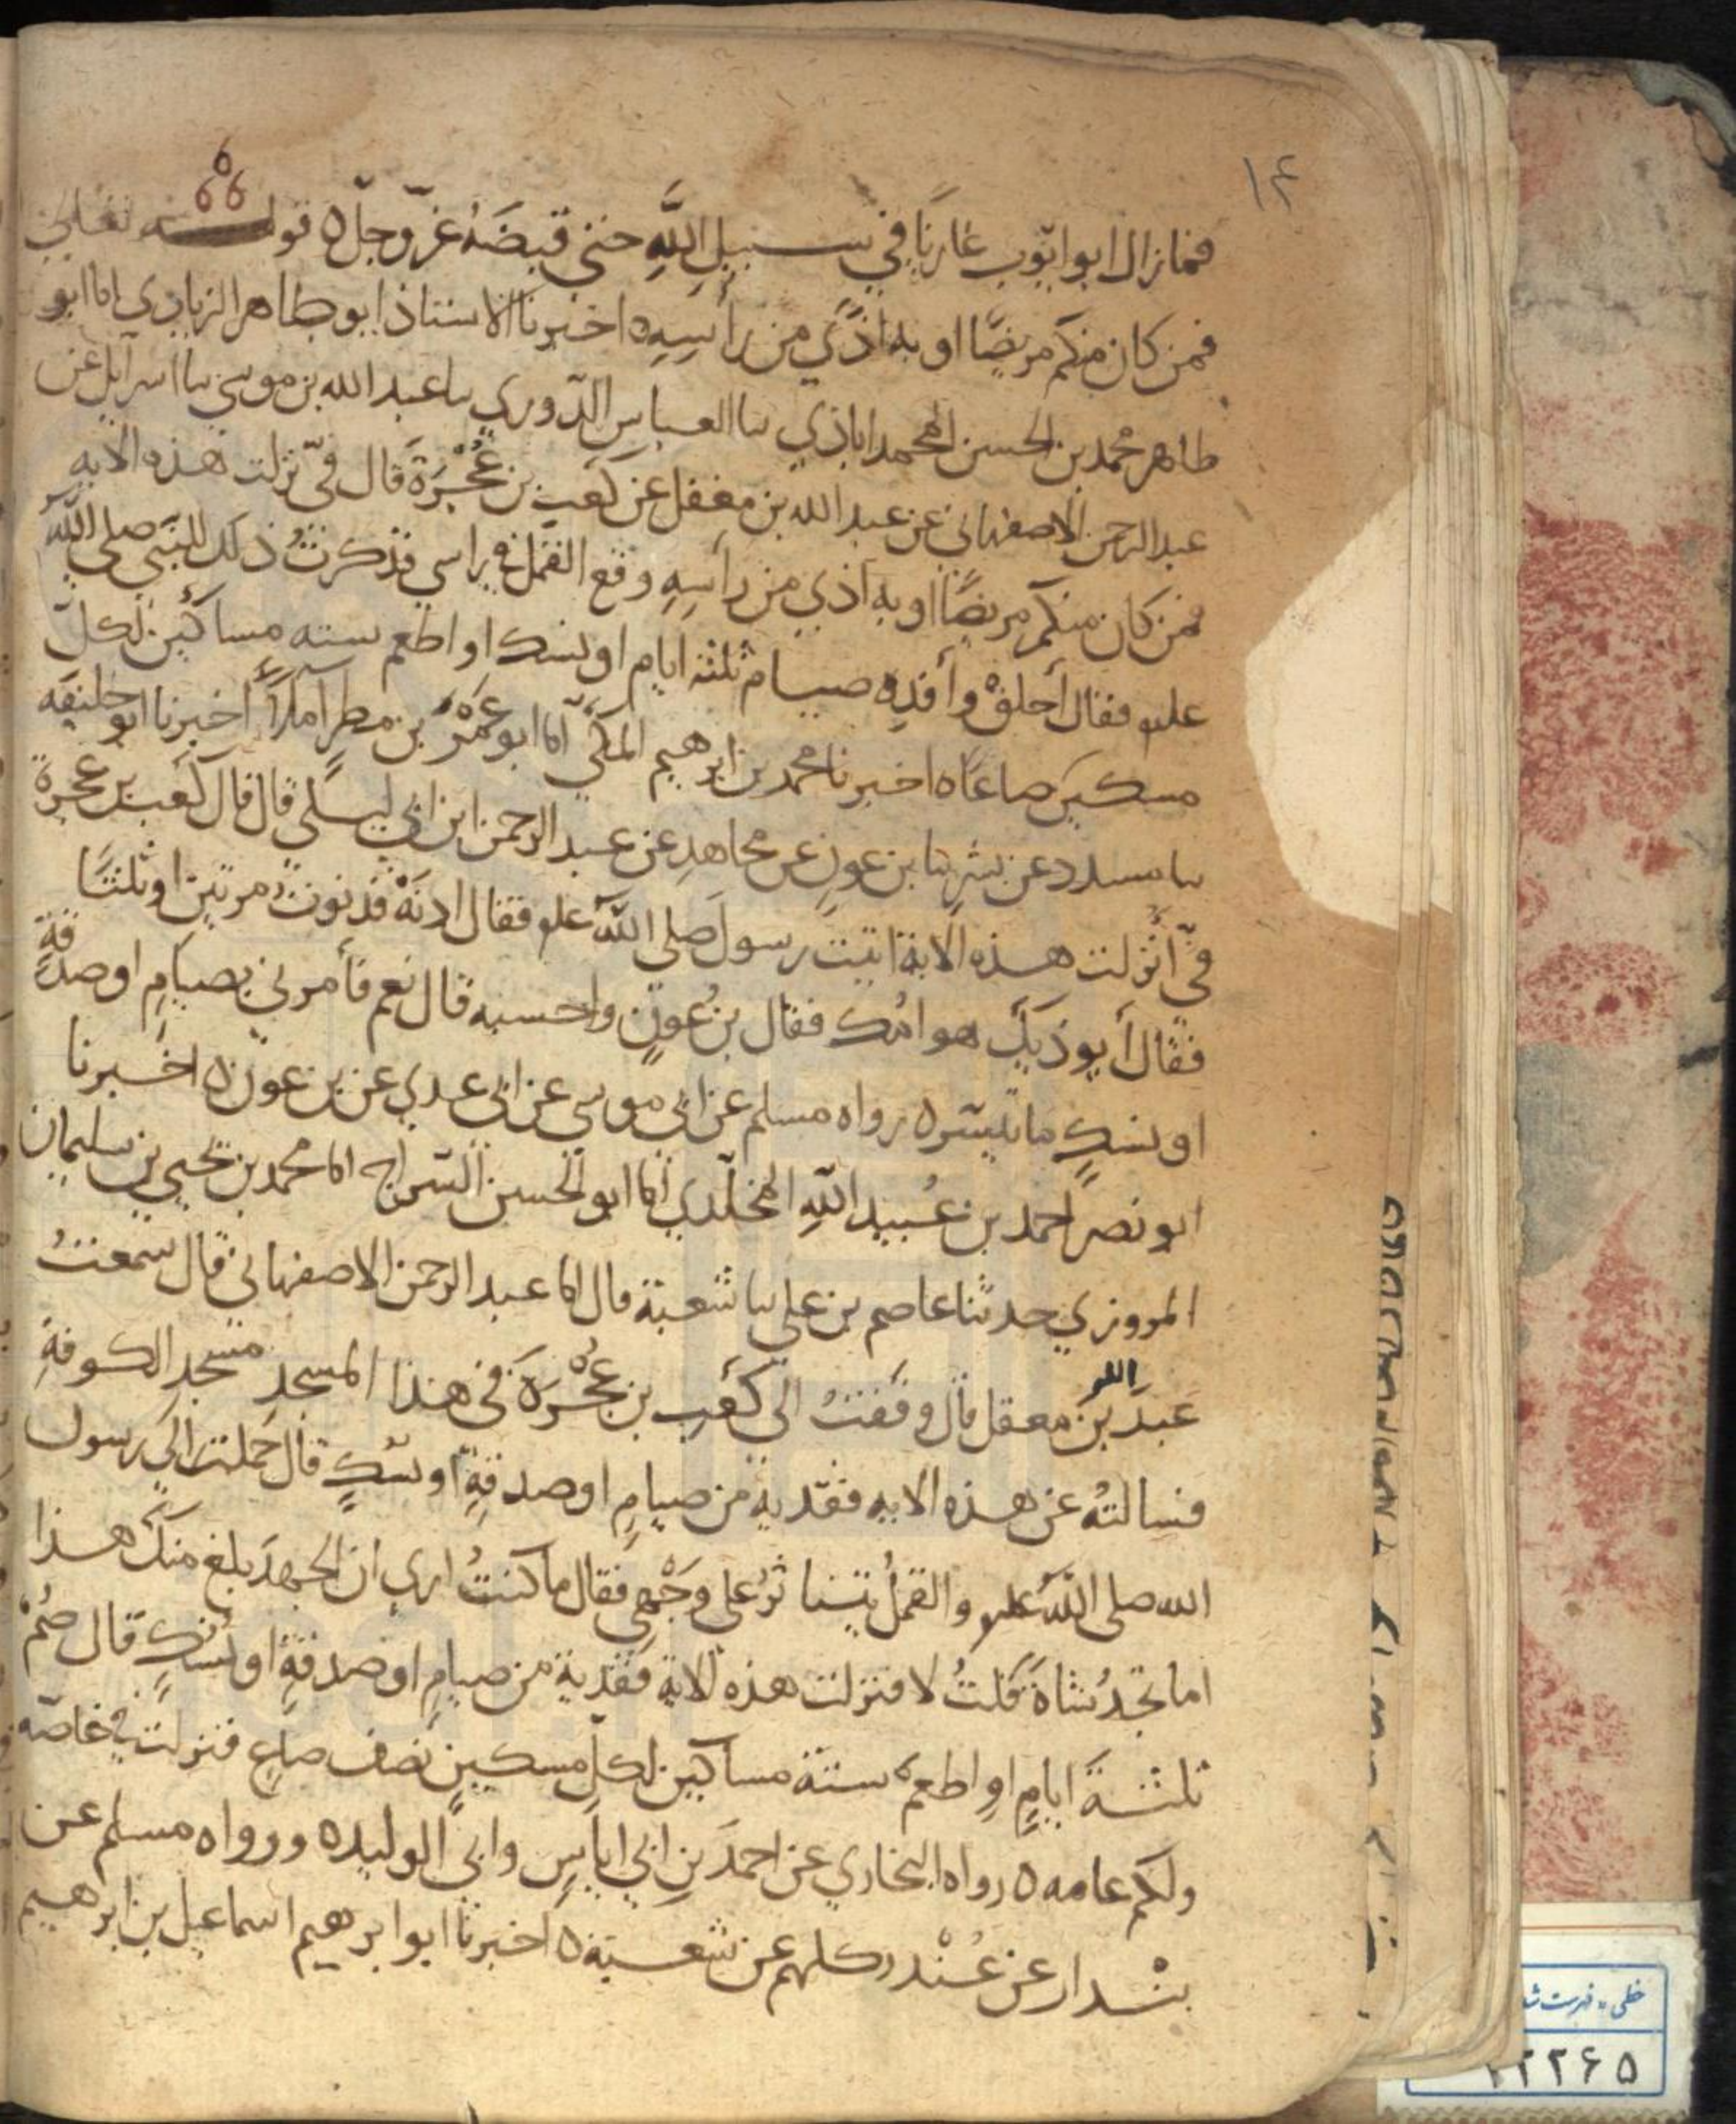 ١٤
فما زال ابو ايّوب غازيًا في سبيل اللهِ حتى قبضَهُ عزّ وجلّ ه قوله تعالى
فمن كان منكم مريضًا او به اذًى من رأسِهِ ه اخبرنا الاستاذ ابو طاهر الزيادي انا ابو
طاهر محمد بن الحسن المحمداباذي نا العباس الدّوري نا عبد الله بن موسى نا اسرائل عن
عبد الرحمن الاصفهاني عن عبد الله بن مغفل عن كعب بن عُجْرَة قال فيّ نزلت هذه الايه
فمن كان منكم مريضًا او به اذي من رأسِهِ وقع القمل في راسي فذكرتُ ذلك للنبي صلى الله
عليه فقال أحلقْ وأفدِه صيام ثلثة ايام او نسك او اطعم سته مساكين لكل
مسكين صاعًا ه اخبرنا محمد بن ابرهيم المكي انا ابو عَمْرو بن مطر املاءً اخبرنا ابو خليفه
نا مسدد عن بشر نا بن عون عن مجاهد عن عبد الرحمن ابن ابي ليلى قال قال كعب بن عجرة
فيّ أُنزلت هذه الاية اتيت رسول صلى الله عليه فقال ادنَهْ فدنوت مرتين او ثلثًا
فقال أيوذيك هوامّك فقال بن عون واحسبه قال نعم فأمرني بصيام او صدقةٍ
او نسكٍ ما تيسّر ه رواه مسلم عن ابي موسى عن ابي عدي عن بن عون ه اخبرنا
ابو نصر احمد بن عُبيد اللهِ المخلّدي انا ابو الحسن السّراج انا محمد بن يحيى بن سليمان
المروزي حدثنا عاصم بن علي نا شعبة قال انا عبد الرحمن الاصفهاني قال سمعتُ
عبدَ الله بن معقل قال وقفتُ الى كعب بن عُجْرَة في هذا المسجد مسجد الكوفةِ
فسالتُهُ عن هذه الايه ففدية من صيامٍ او صدقةٍ او نسكٍ قال حُملت الى رسول
الله صلى اللهُ عليه والقملُ يتناثرُ على وجْهي فقال ما كنتُ ارى ان الجهدَ بلغ منك هذا
اما تجدُ شاةً قلتُ لا فنزلت هذه الاية ففدية من صيامٍ او صدقةٍ او نُسُكٍ قال صُمْ
ثلثةَ ايامٍ او اطعم ستة مساكين لكل مسكينٍ نصف صاعٍ فنزلت فيّ خاصّه
ولكم عامه ه رواه البخاري عن احمدَ بنِ ابي اياسٍ وابي الوليد ه ورواه مسلم عن
بُنْدار عن غُنْدر كلهم عن شعبة ه اخبرنا ابو ابرهيم اسماعيل بن ابرهيم
خطی، فهرست شد
٢٢٦٥